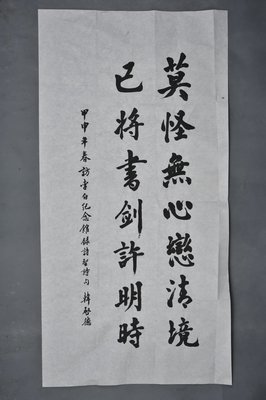 莫怪無心戀清境
已將書劍許明時
甲申年春訪李白紀念館録詩聖詩句 韓啓德